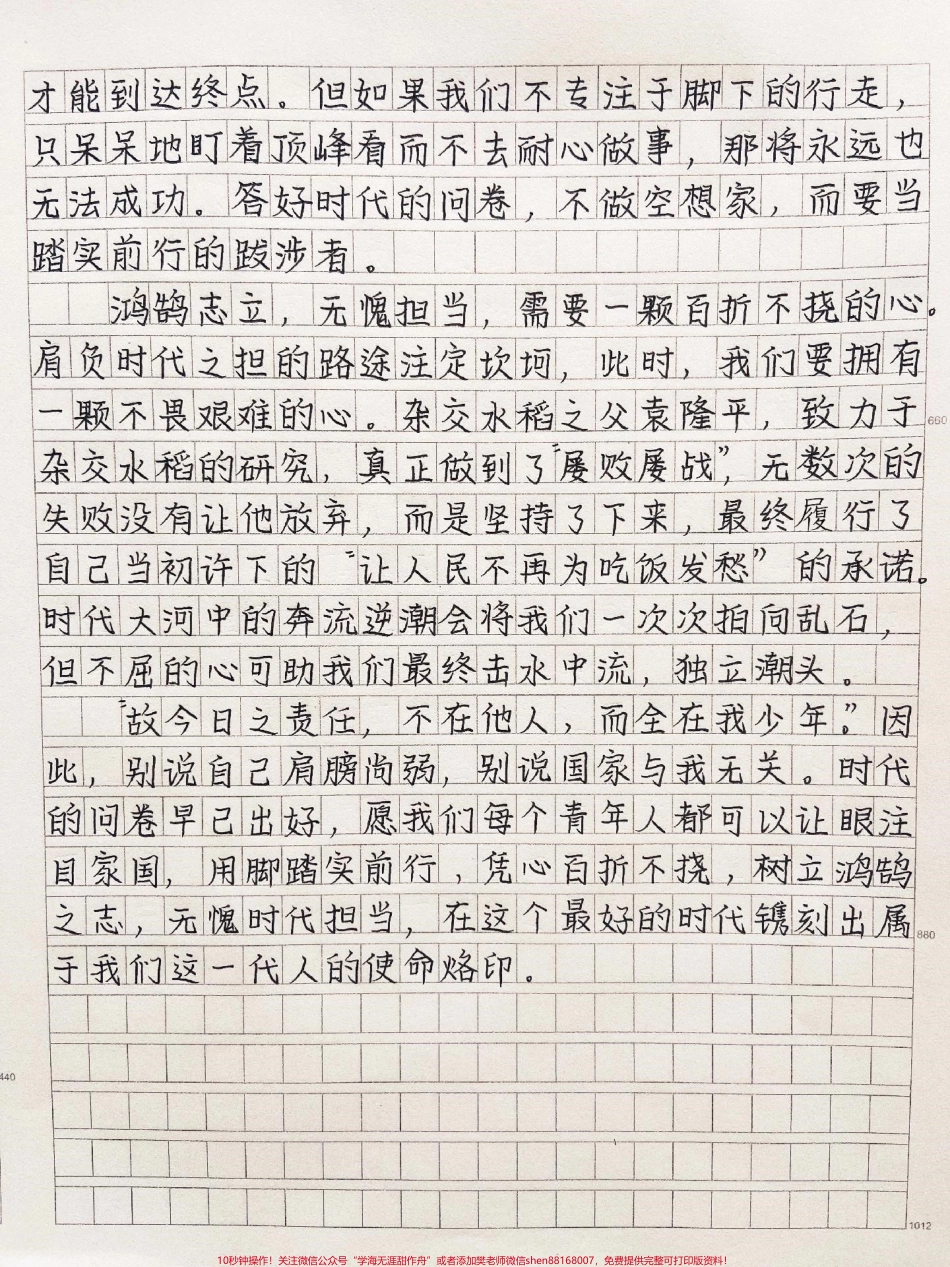 才能到达终点。但如果我们不专注于脚下的行走，
只呆呆地盯着顶峰看而不去耐心做事，那将永远也
无法成功。答好时代的问卷，不做空想家，而要当
踏实前行的跋涉者。
鸿鹄志立，无愧担当，需要一颗百折不挠的心。
肩负时代之担的路途注定坎坷，此时，我们要拥有
一颗不畏艰难的心。杂交水稻之父袁隆平，致力于
660
杂交水稻的研究，真正做到了“屡败屡战”，无数次的
失败没有让他放弃，而是坚持了下来，最终履行了
自己当初许下的“让人民不再为吃饭发愁”的承诺。
时代大河中的奔流逆潮会将我们一次次拍向乱石，
但不屈的心可助我们最终击水中流，独立潮头。
“故今日之责任，不在他人，而全在我少年”。因
此，别说自己肩膀尚弱，别说国家与我无关。时代
的问卷早已出好，愿我们每个青年人都可以让眼注
目家国，用脚踏实前行，凭心百折不挠，树立鸿鹄
之志，无愧时代担当，在这个最好的时代镌刻出属
880
于我们这一代人的使命烙印。
440
1012
10秒钟操作！关注微信公众号“学海无涯甜作舟”或者添加樊老师微信shen88168007，免费提供完整可打印版资料！